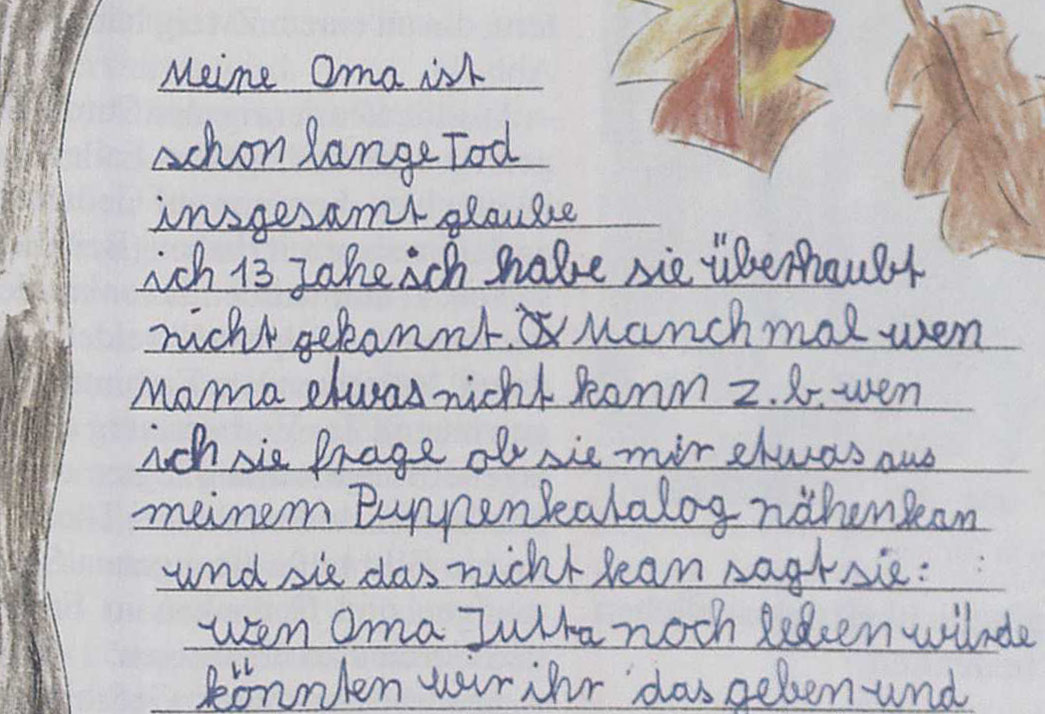 Meine Oma ist
schon lange Tod
insgesamt glaube
ich 13 Jahe ich habe sie überhaubt
nicht gekannt Manchmal wen
Mama etwas nicht kann z.b. wen
ich sie frage ob sie mir etwas aus
meinem Puppenkatalog nähen kan
und sie das nicht kan sagt sie:
wen Oma Jutta noch leben würde
könnten wir ihr das geben und